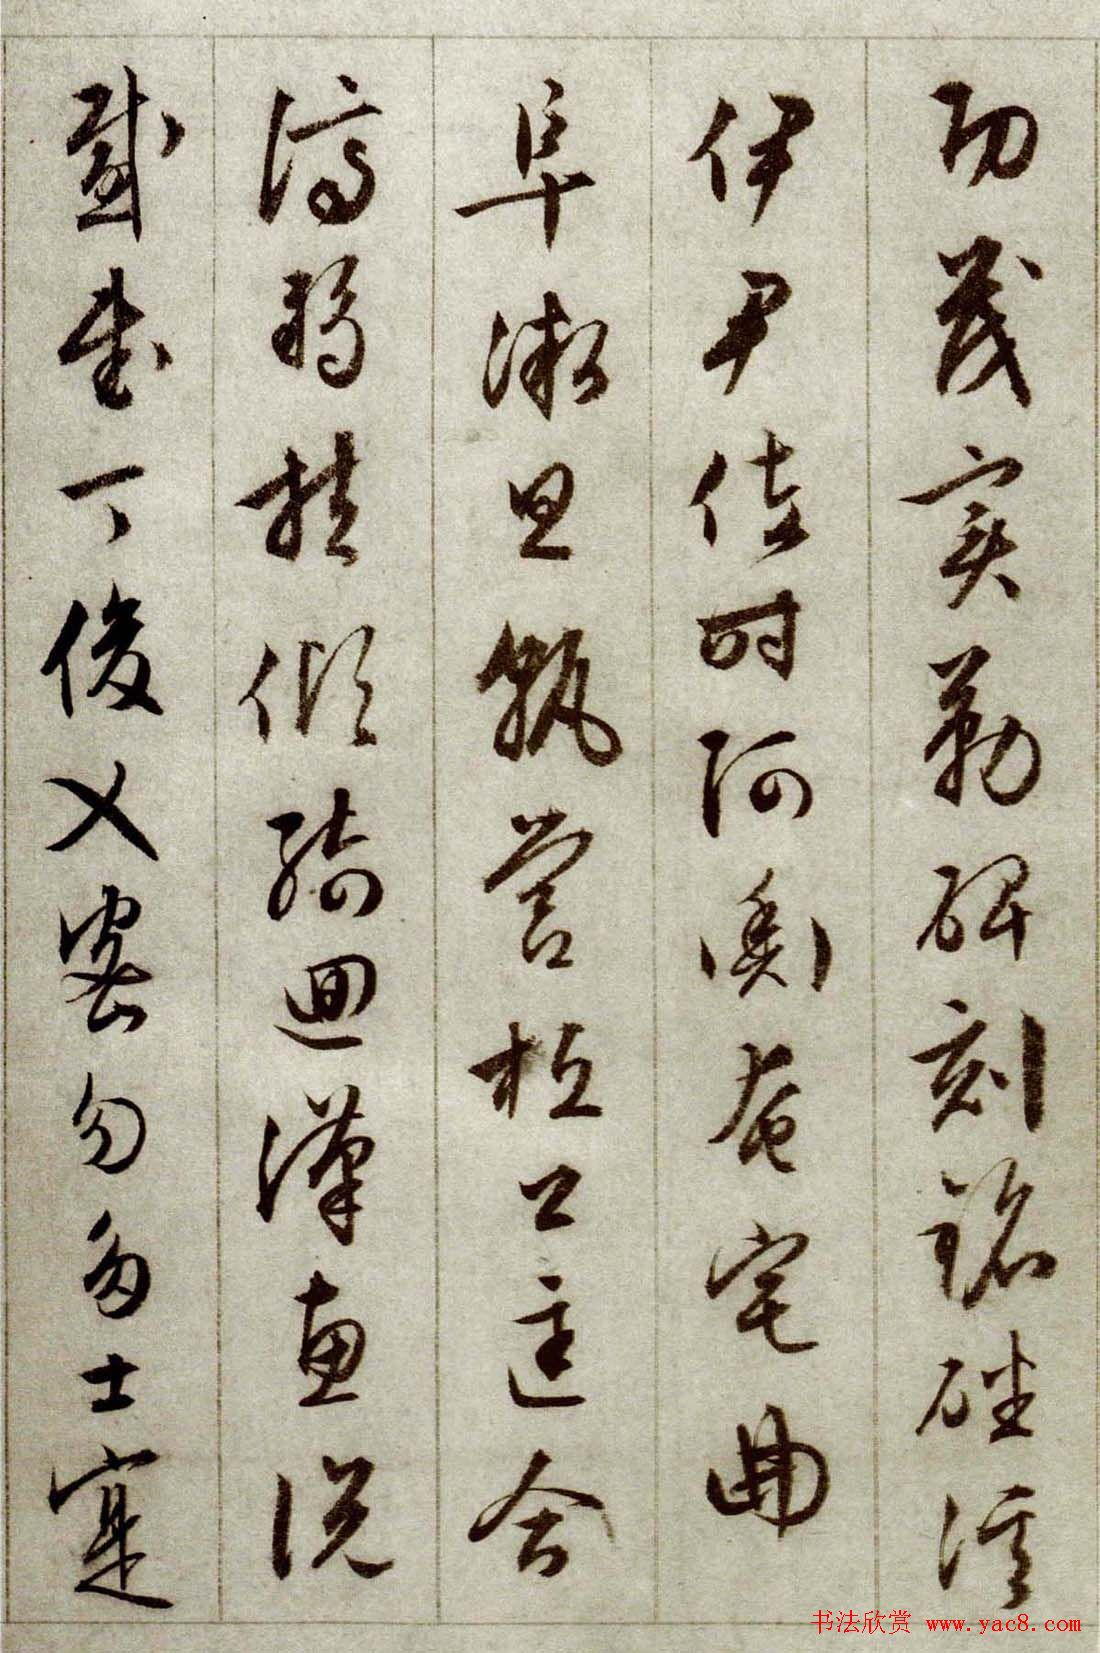 功茂實勒碑刻銘磻溪
伊尹佐時阿衡奄宅曲
阜微旦孰營桓公匡合
濟弱扶傾綺迴漢惠説
感武丁俊乂密勿多士寔
书法欣赏 www.yac8.com